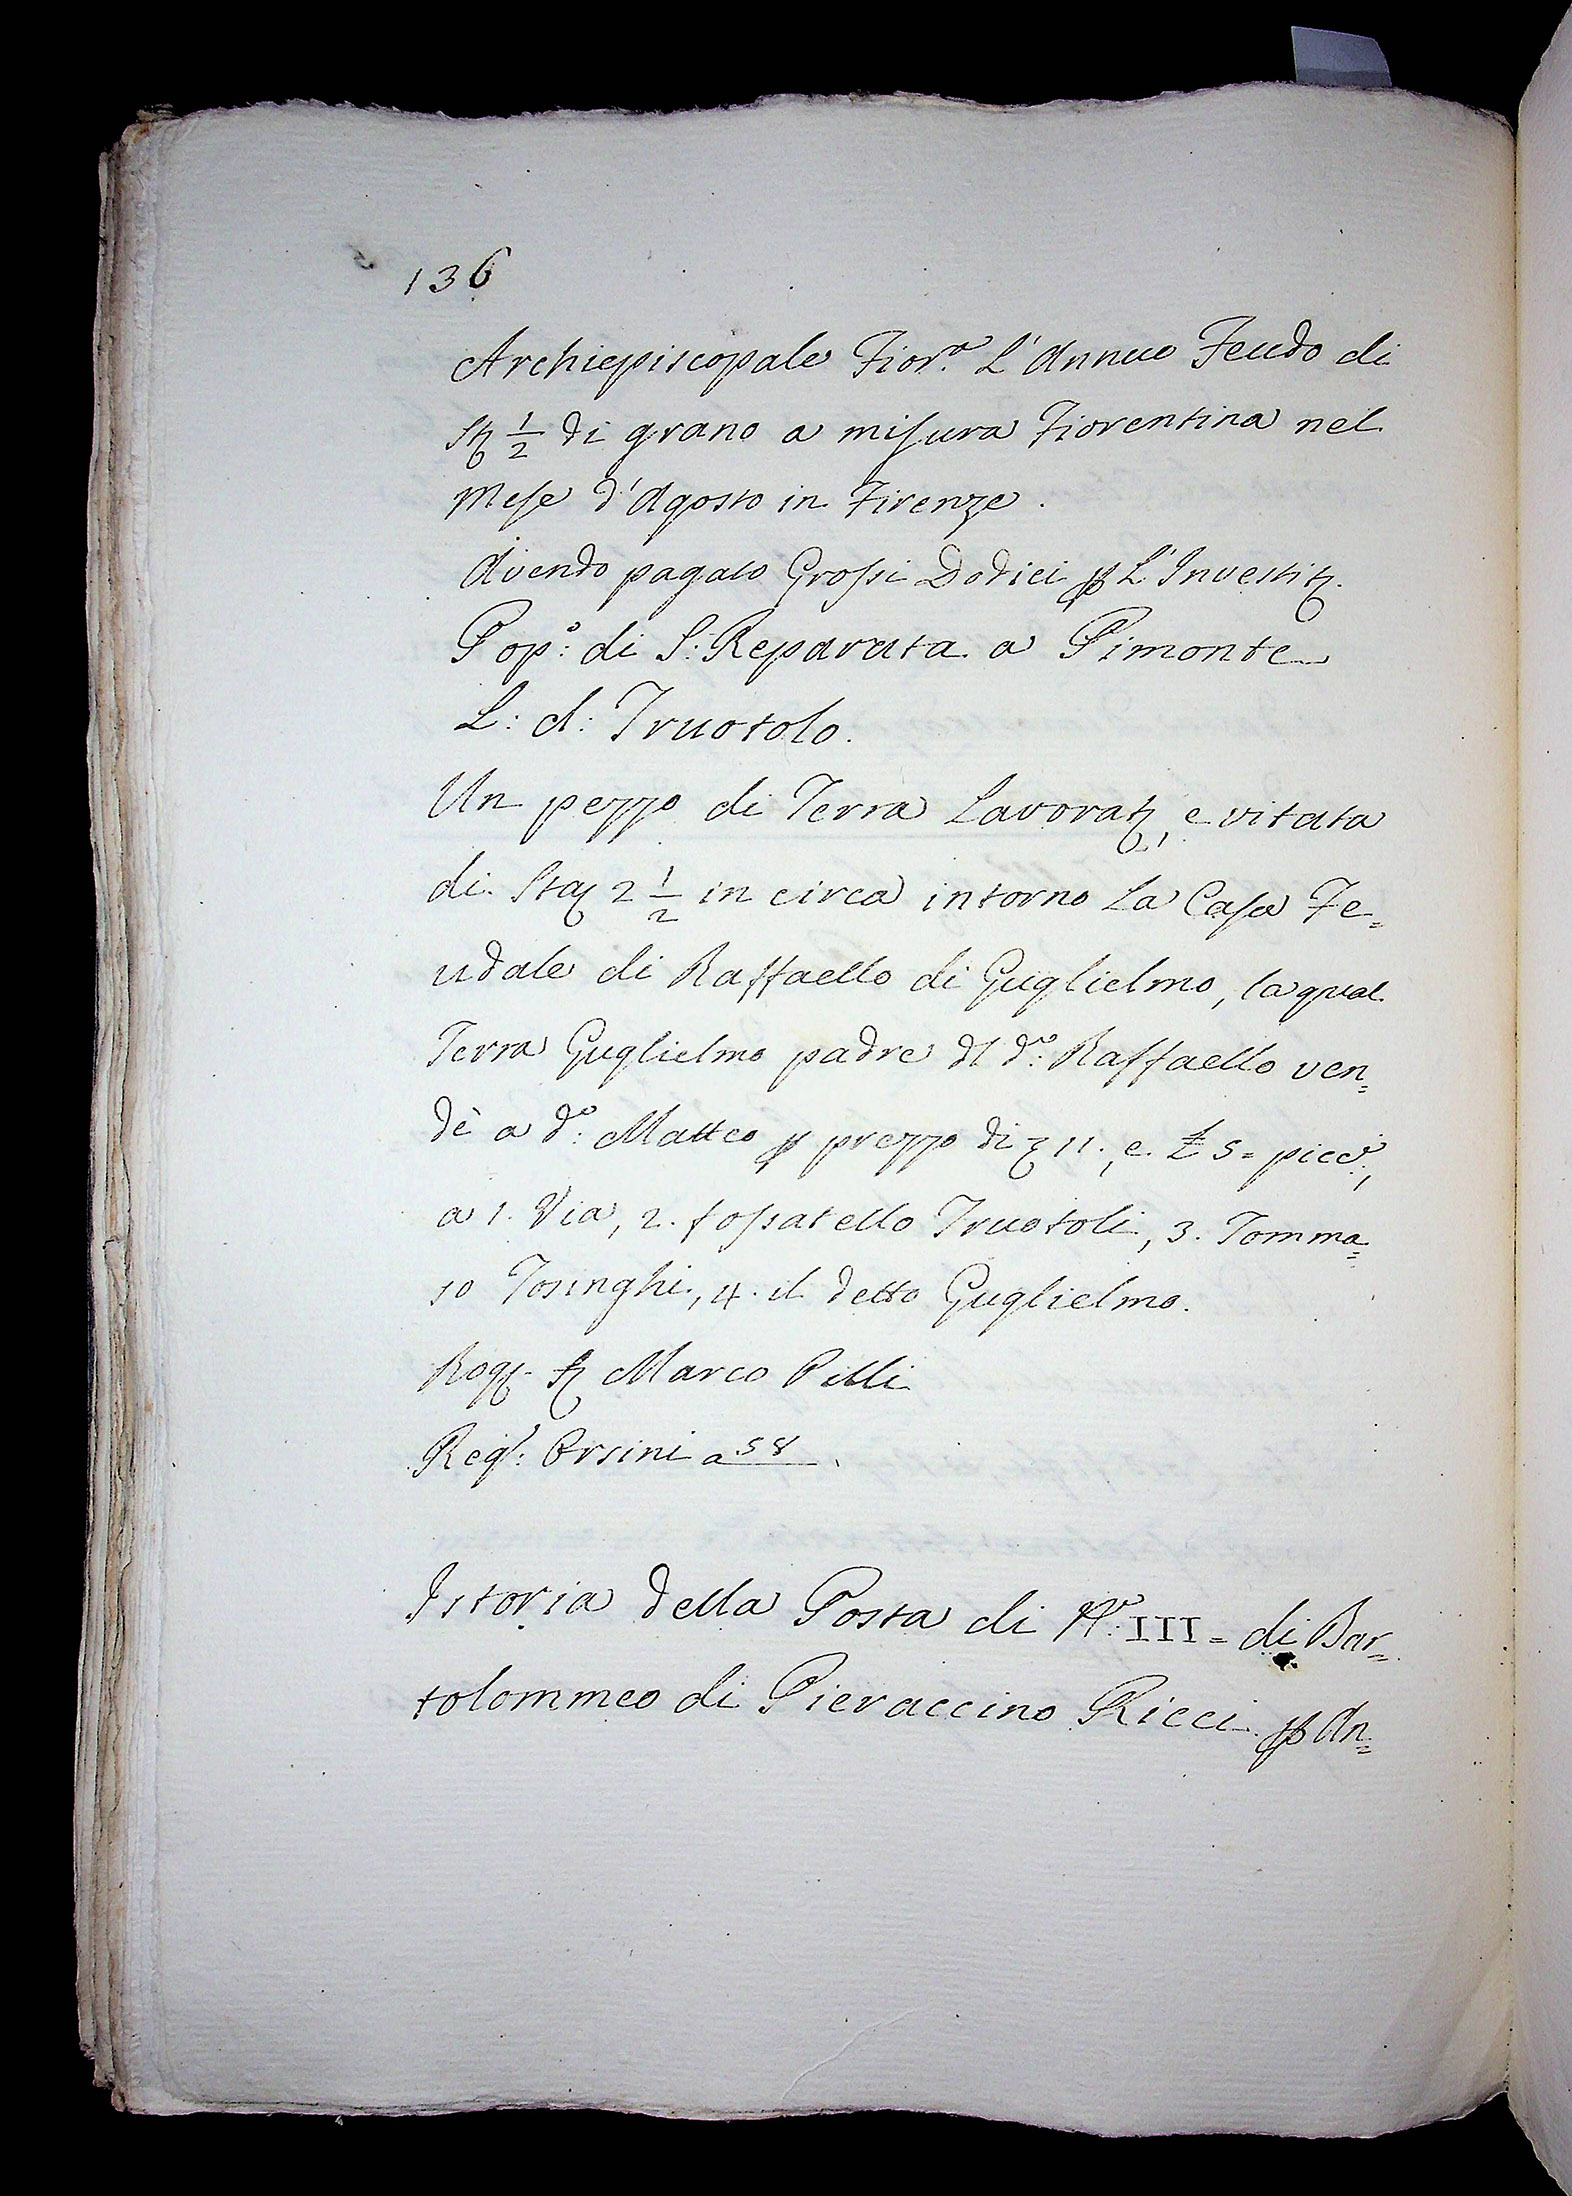 136
Archiepiscopale Fior.ª L'Annuo Feudo di
St. 1/2 di grano a miſura Fiorentina nel
Meſe d'Agosto in Firenze.
Avendo pagato Groſsi Dodici ꝑ L'Investit.
Pop:º di S: Reparata a Pimonte
L: d: Truotolo.
Un pezzo di Terra Lavorat, e vitata
di Sta 2 1/2 in circa intorno La Caſa Fe=
udale di Raffaello di Guglielmo, la qual
Terra Guglielmo padre dl dº: Raffaello ven=
dè a dº: Matteo ꝑ prezzo di 11., e £ 5= picci,
a 1. Via, 2. foſsatello Truotoli, 3. Tomma=
so Tosinghi, 4. il detto Guglielmo.
Rog. S. Marco Pilli
Reg: Orsini a 58.
Istoria della Posta di Nº: III= di Bar=
tolommeo di Pieraccino Ricci ꝑ An=